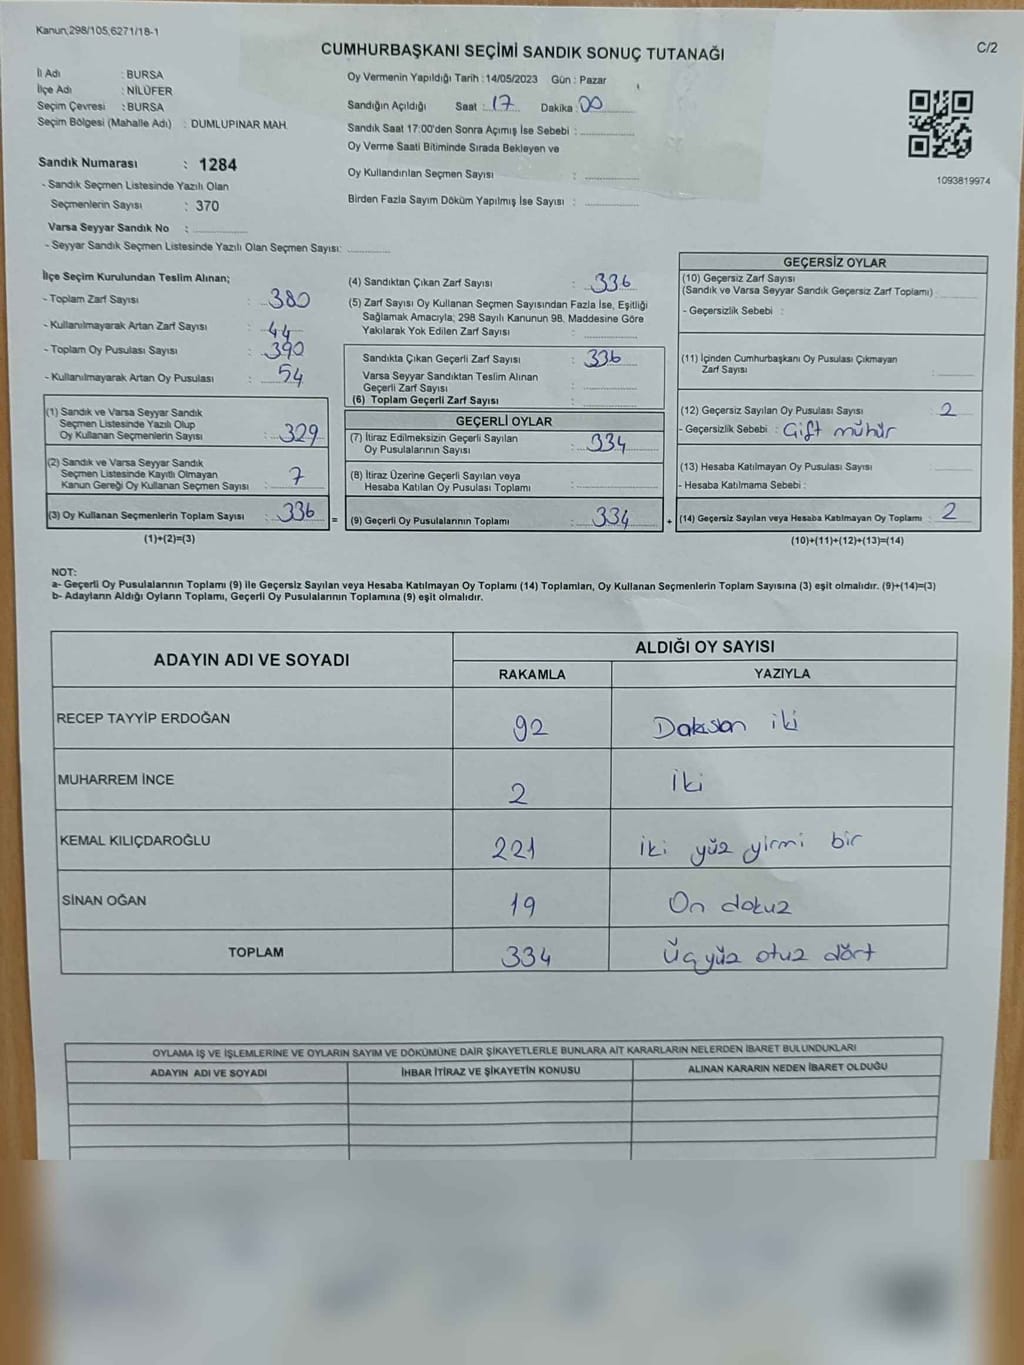 Kanun,298/105,6271/18-1
CUMHURBAŞKANI SEÇİMİ SANDIK SONUÇ TUTANAĞI
C/2
İl Adı : BURSA
İlçe Adı : NİLÜFER
Seçim Çevresi : BURSA
Seçim Bölgesi (Mahalle Adı) : DUMLUPINAR MAH.
Oy Vermenin Yapıldığı Tarih : 14/05/2023 Gün : Pazar
Sandığın Açıldığı Saat : 17 Dakika : 00
Sandık Saat 17:00'den Sonra Açımış İse Sebebi :
Oy Verme Saati Bitiminde Sırada Bekleyen ve
Oy Kullandırılan Seçmen Sayısı :
Birden Fazla Sayım Döküm Yapılmış İse Sayısı :
1093819974
Sandık Numarası : 1284
- Sandık Seçmen Listesinde Yazılı Olan
Seçmenlerin Sayısı : 370
Varsa Seyyar Sandık No :
- Seyyar Sandık Seçmen Listesinde Yazılı Olan Seçmen Sayısı:
İlçe Seçim Kurulundan Teslim Alınan;
- Toplam Zarf Sayısı : 380
- Kullanılmayarak Artan Zarf Sayısı : 44
- Toplam Oy Pusulası Sayısı : 390
- Kullanılmayarak Artan Oy Pusulası : 54
(1) Sandık ve Varsa Seyyar Sandık
Seçmen Listesinde Yazılı Olup
Oy Kullanan Seçmenlerin Sayısı : 329
(2) Sandık ve Varsa Seyyar Sandık
Seçmen Listesinde Kayıtlı Olmayan
Kanun Gereği Oy Kullanan Seçmen Sayısı : 7
(3) Oy Kullanan Seçmenlerin Toplam Sayısı : 336
(1)+(2)=(3)
(4) Sandıktan Çıkan Zarf Sayısı : 336
(5) Zarf Sayısı Oy Kullanan Seçmen Sayısından Fazla İse, Eşitliği
Sağlamak Amacıyla; 298 Sayılı Kanunun 98. Maddesine Göre
Yakılarak Yok Edilen Zarf Sayısı :
Sandıkta Çıkan Geçerli Zarf Sayısı : 336
Varsa Seyyar Sandıktan Teslim Alınan
Geçerli Zarf Sayısı :
(6) Toplam Geçerli Zarf Sayısı :
GEÇERLİ OYLAR
(7) İtiraz Edilmeksizin Geçerli Sayılan
Oy Pusulalarının Sayısı : 334
(8) İtiraz Üzerine Geçerli Sayılan veya
Hesaba Katılan Oy Pusulası Toplamı :
= (9) Geçerli Oy Pusulalarının Toplamı : 334 +
GEÇERSİZ OYLAR
(10) Geçersiz Zarf Sayısı
(Sandık ve Varsa Seyyar Sandık Geçersiz Zarf Toplamı) :
- Geçersizlik Sebebi :
(11) İçinden Cumhurbaşkanı Oy Pusulası Çıkmayan
Zarf Sayısı :
(12) Geçersiz Sayılan Oy Pusulası Sayısı : 2
- Geçersizlik Sebebi : Çift mühür
(13) Hesaba Katılmayan Oy Pusulası Sayısı :
- Hesaba Katılmama Sebebi :
(14) Geçersiz Sayılan veya Hesaba Katılmayan Oy Toplamı : 2
(10)+(11)+(12)+(13)=(14)
NOT:
a- Geçerli Oy Pusulalarının Toplamı (9) ile Geçersiz Sayılan veya Hesaba Katılmayan Oy Toplamı (14) Toplamları, Oy Kullanan Seçmenlerin Toplam Sayısına (3) eşit olmalıdır. (9)+(14)=(3)
b- Adayların Aldığı Oyların Toplamı, Geçerli Oy Pusulalarının Toplamına (9) eşit olmalıdır.
ADAYIN ADI VE SOYADI ALDIĞI OY SAYISI
RAKAMLA YAZIYLA
RECEP TAYYİP ERDOĞAN 92 Doksan iki
MUHARREM İNCE 2 İki
KEMAL KILIÇDAROĞLU 221 iki yüz yirmi bir
SİNAN OĞAN 19 On dokuz
TOPLAM 334 Üçyüz otuz dört
OYLAMA İŞ VE İŞLEMLERİNE VE OYLARIN SAYIM VE DÖKÜMÜNE DAİR ŞİKAYETLERLE BUNLARA AİT KARARLARIN NELERDEN İBARET BULUNDUKLARI
ADAYIN ADI VE SOYADI İHBAR İTİRAZ VE ŞİKAYETİN KONUSU ALINAN KARARIN NEDEN İBARET OLDUĞU